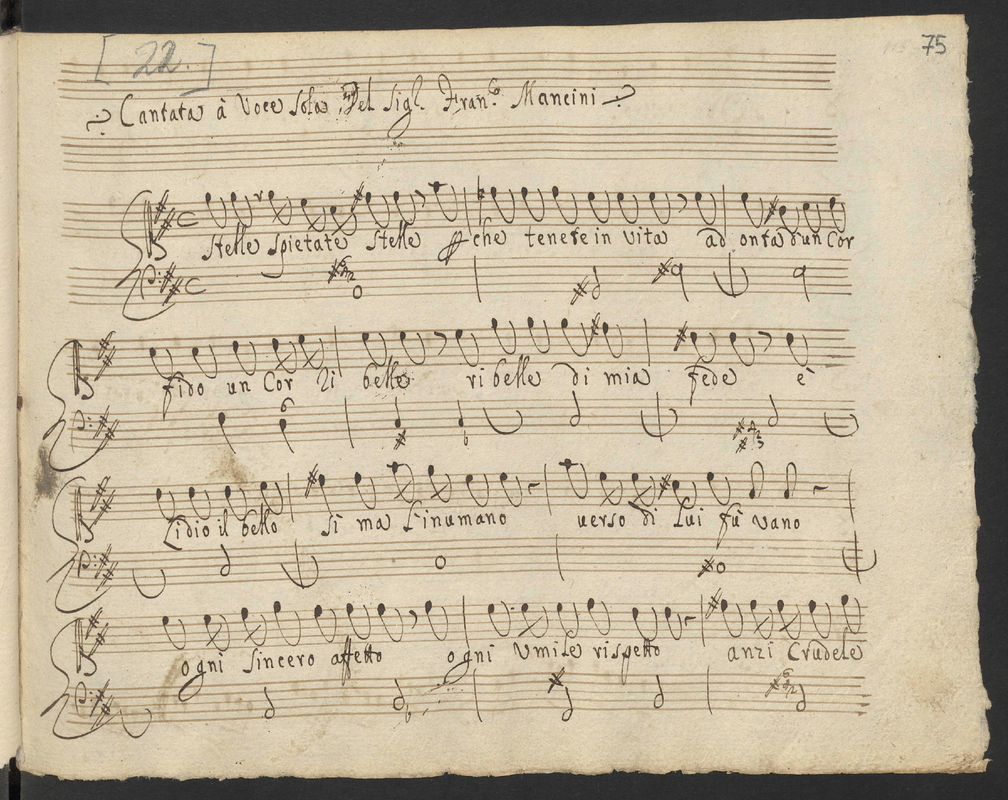 [22.]
75
Cantata à Voce sola Del Sigr. Franco. Mancini
Stelle spietate stelle che tenete in vita ad onta d'un Cor
fido un Cor ri belle ribelle di mia fede è
Lidio il bello si ma l'inumano verso di lui fù vano
ogni sincero affetto ogni Umile rispetto anzi Crudele